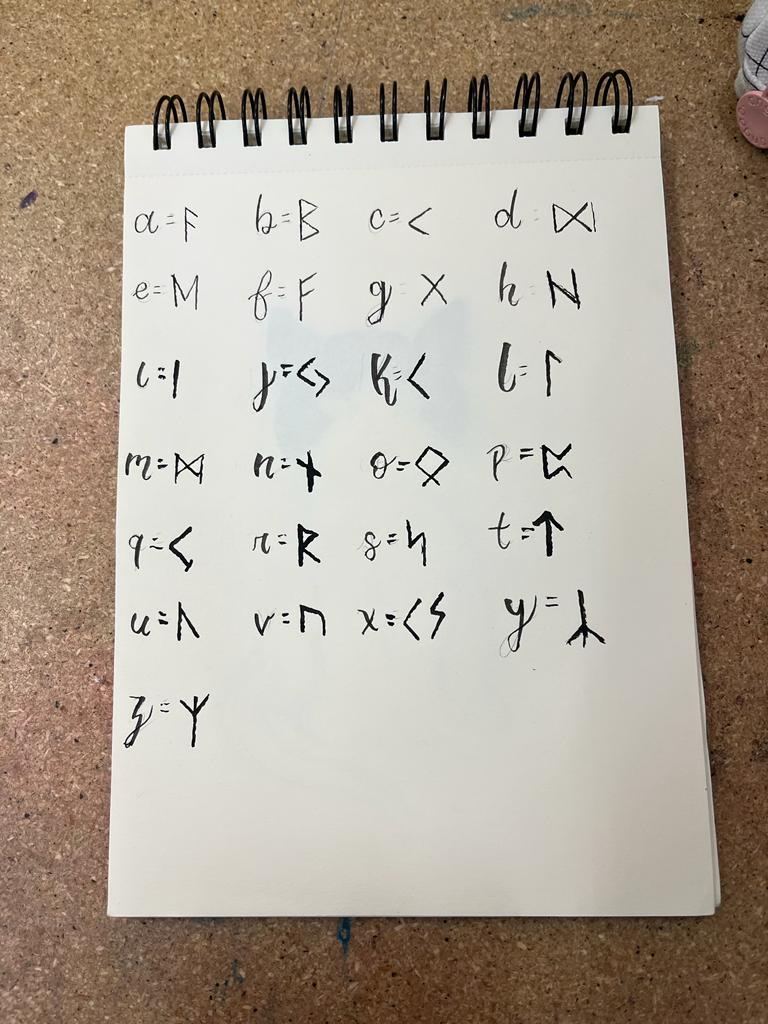 a=ᚨ b=ᛒ c=ᚲ d=ᛞ
e=ᛖ f=ᚠ g=ᚷ h=ᚺ
i=ᛁ j=ᛃ k=ᚲ l=ᛚ
m=ᛗ n=ᚾ o=ᛟ p=ᛈ
q=ᚲ r=ᚱ s=ᛋ t=ᛏ
u=ᚢ v=ᚢ x=ᚲᛋ y=ᛦ
z=ᛉ